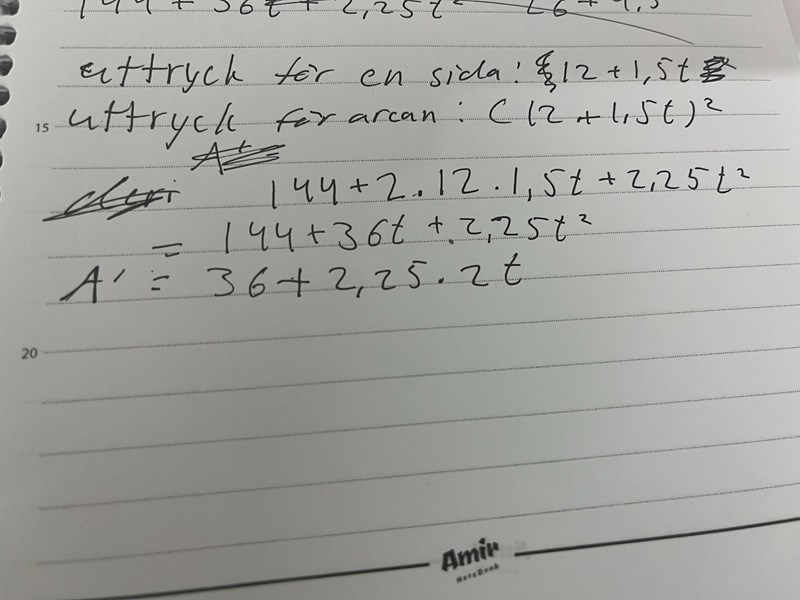 144 + 36t + 2,25t²
uttryck för en sida: 12 + 1,5t
15 uttryck för arean: (12 + 1,5t)²
144 + 2 · 12 · 1,5t + 2,25t²
= 144 + 36t + 2,25t²
A' = 36 + 2,25 · 2t
20
Amir
NoteBook